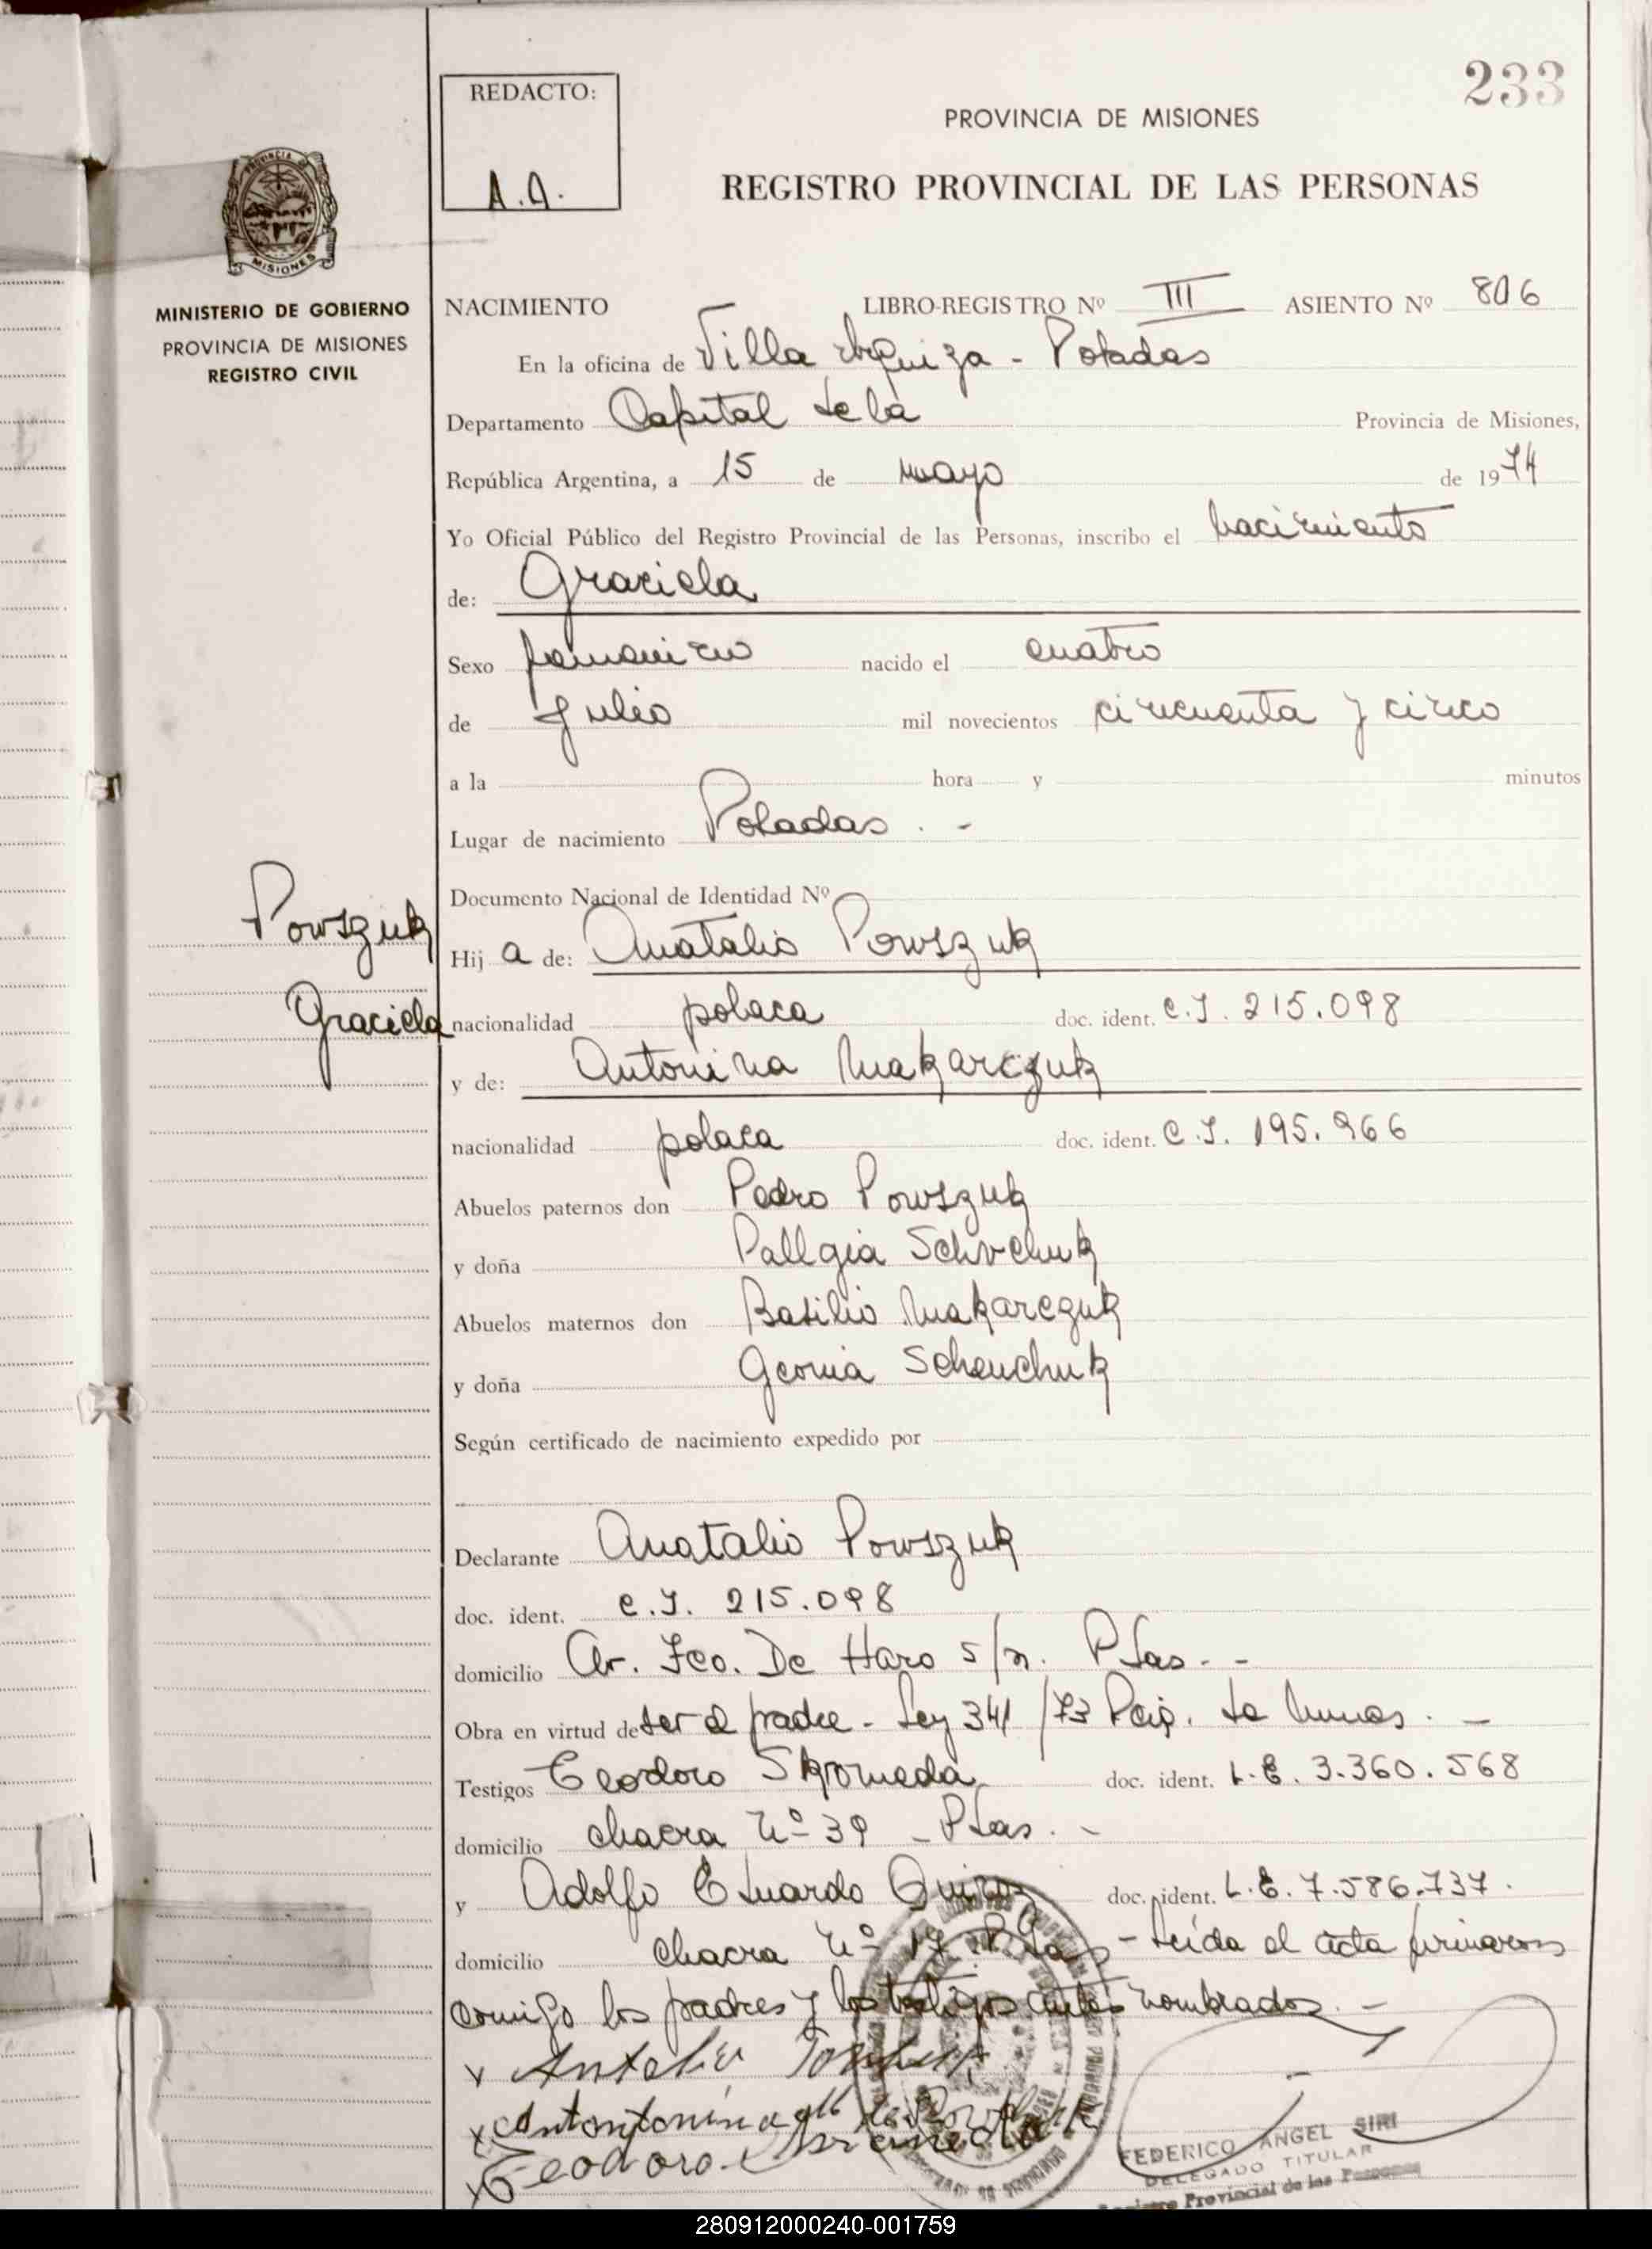 233
REDACTO:
A.A.
PROVINCIA DE MISIONES
REGISTRO PROVINCIAL DE LAS PERSONAS
PROVINCIA
MISIONES
MINISTERIO DE GOBIERNO
PROVINCIA DE MISIONES
REGISTRO CIVIL
NACIMIENTO LIBRO-REGISTRO Nº III ASIENTO Nº 806
En la oficina de Villa Urquiza - Posadas
Departamento Capital de la Provincia de Misiones,
República Argentina, a 15 de mayo de 1974
Yo Oficial Público del Registro Provincial de las Personas, inscribo el nacimiento
de: Graciela
Sexo femenino nacido el cuatro
de Julio mil novecientos cincuenta y cinco
a la hora y minutos
Lugar de nacimiento Posadas . -
Documento Nacional de Identidad Nº
Powszuk
Graciela
Hij a de: Anatalio Powszuk
nacionalidad polaca doc. ident. C.I. 215.098
y de: Antonina Makarczuk
nacionalidad polaca doc. ident. C.I. 195.966
Abuelos paternos don Pedro Powszuk
y doña Pallgia Schvchuk
Abuelos maternos don Basilio Makarczuk
y doña Genia Schenchuk
Según certificado de nacimiento expedido por
Declarante Anatalio Powszuk
doc. ident. C.I. 215.098
domicilio Av. Fco. De Haro s/n. Psas. -
Obra en virtud de ser el padre - Ley 341/73
Testigos Teodoro Skromeda doc. ident. L.E. 3.360.568
domicilio chacra Nº 39 - Psas. -
y Adolfo Eduardo Quiroz doc. ident. L.E. 7.586.737.
domicilio chacra Nº 17 Psas - Leída el acta firmaron
conmigo los padres y los testigos antes nombrados. -
x
x Antontonina
x Teodoro
FEDERICO ANGEL SIRI
DELEGADO TITULAR
Registro Provincial de las Personas
280912000240-001759